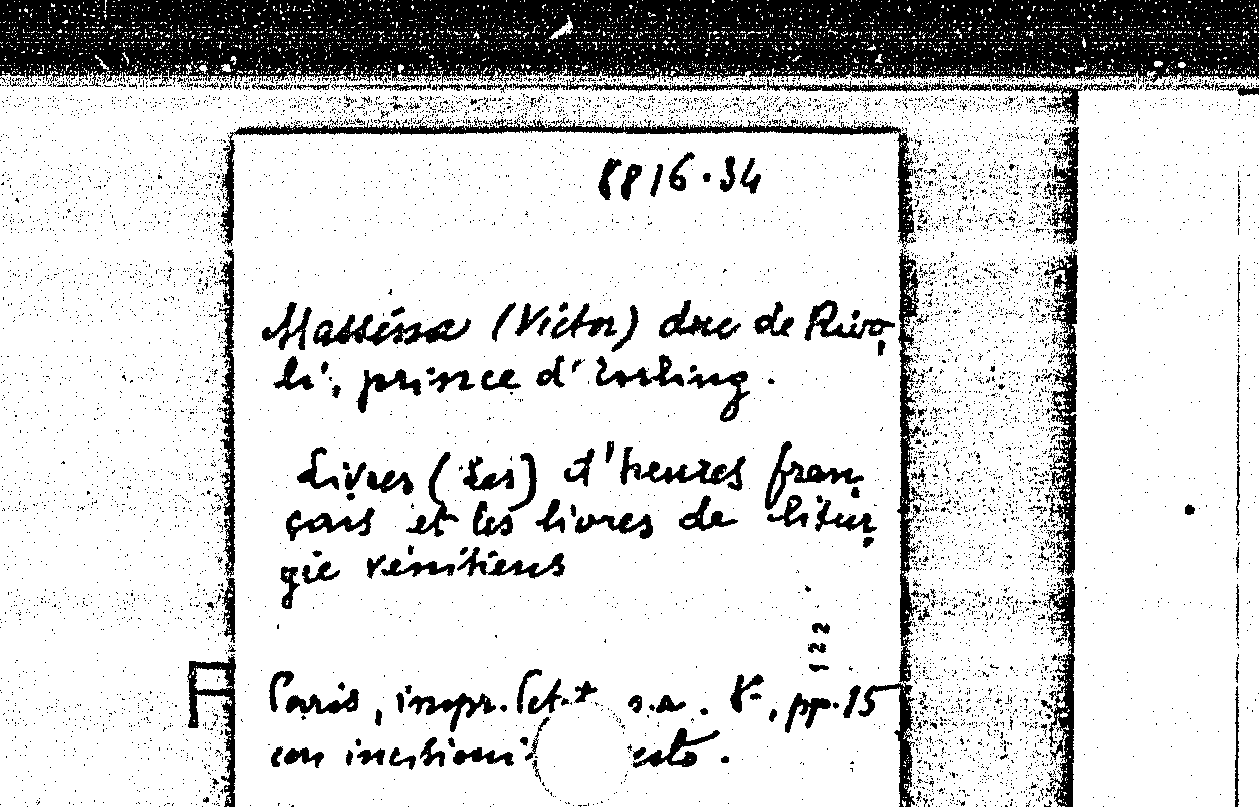 8816.34
Masséna (Victor) duc de Rivo,
li, prince d'Essling.
Livres (Les) d'heures fran,
çais et les livres de litur,
gie vénitiens
122
Paris, impr. Petit s.a. 8°, pp. 15
con incisioni